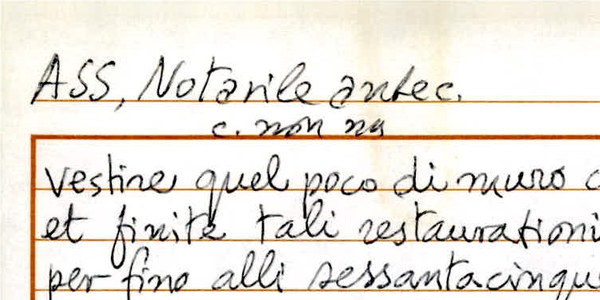 ASS, Notarile antec.
c. non na
vestire quel poco di muro c
et finite tali restaurationi
per fino alli sessantacinque